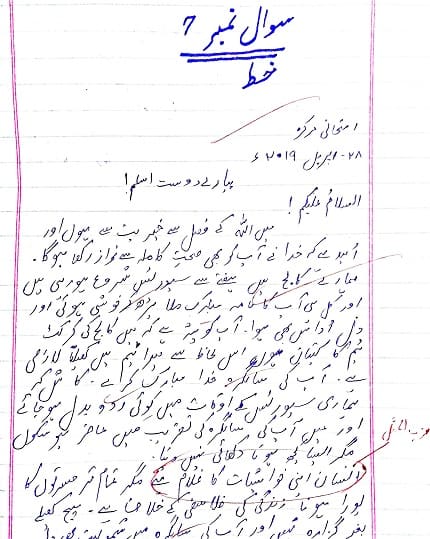 سوال نمبر 7
خط
امتحانی مرکز
۲۸-اپریل ۲۰۱۹ء
پیارے دوست اسلم!
السلام علیکم!
میں اللہ کے فضل سے خیریت سے ہوں اور
اُمید ہے کہ خدا نے آپ کو بھی صحتِ کاملہ سے نواز رکھا ہوگا۔
ہمارے کالج میں ہفتے سے سپورٹس شروع ہو رہی ہیں
اور کل ہی آپ کا نامہ مبارک ملا پڑھ کر خوشی ہوئی اور
دل اُداس بھی ہوا۔ آپ کو پتہ ہے کہ میں کالج کی کرکٹ
ٹیم کا کپتان ہوں اس لحاظ سے میرا ٹیم میں کھیلنا لازمی
ہے۔ آپ کی سالگرہ خدا مبارک کرے۔ کاش کہ
ہماری سپورٹس کے اوقات میں کوئی ردو بدل ہو جائے
اور میں آپ کی سالگرہ کی تقریب میں حاضر ہو سکوں
مگر ایسا کچھ ہوتا دکھائی نہیں دیتا۔
انسان اپنی خواہشات کا غلام ہے مگر تمام تر مسرتوں کا
پورا ہونا زندگی کی فلاسفی کے خلاف ہے۔ میچ کھیلے
بغیر گزارہ نہیں اور آپ کی سالگرہ میں شمولیت بھی